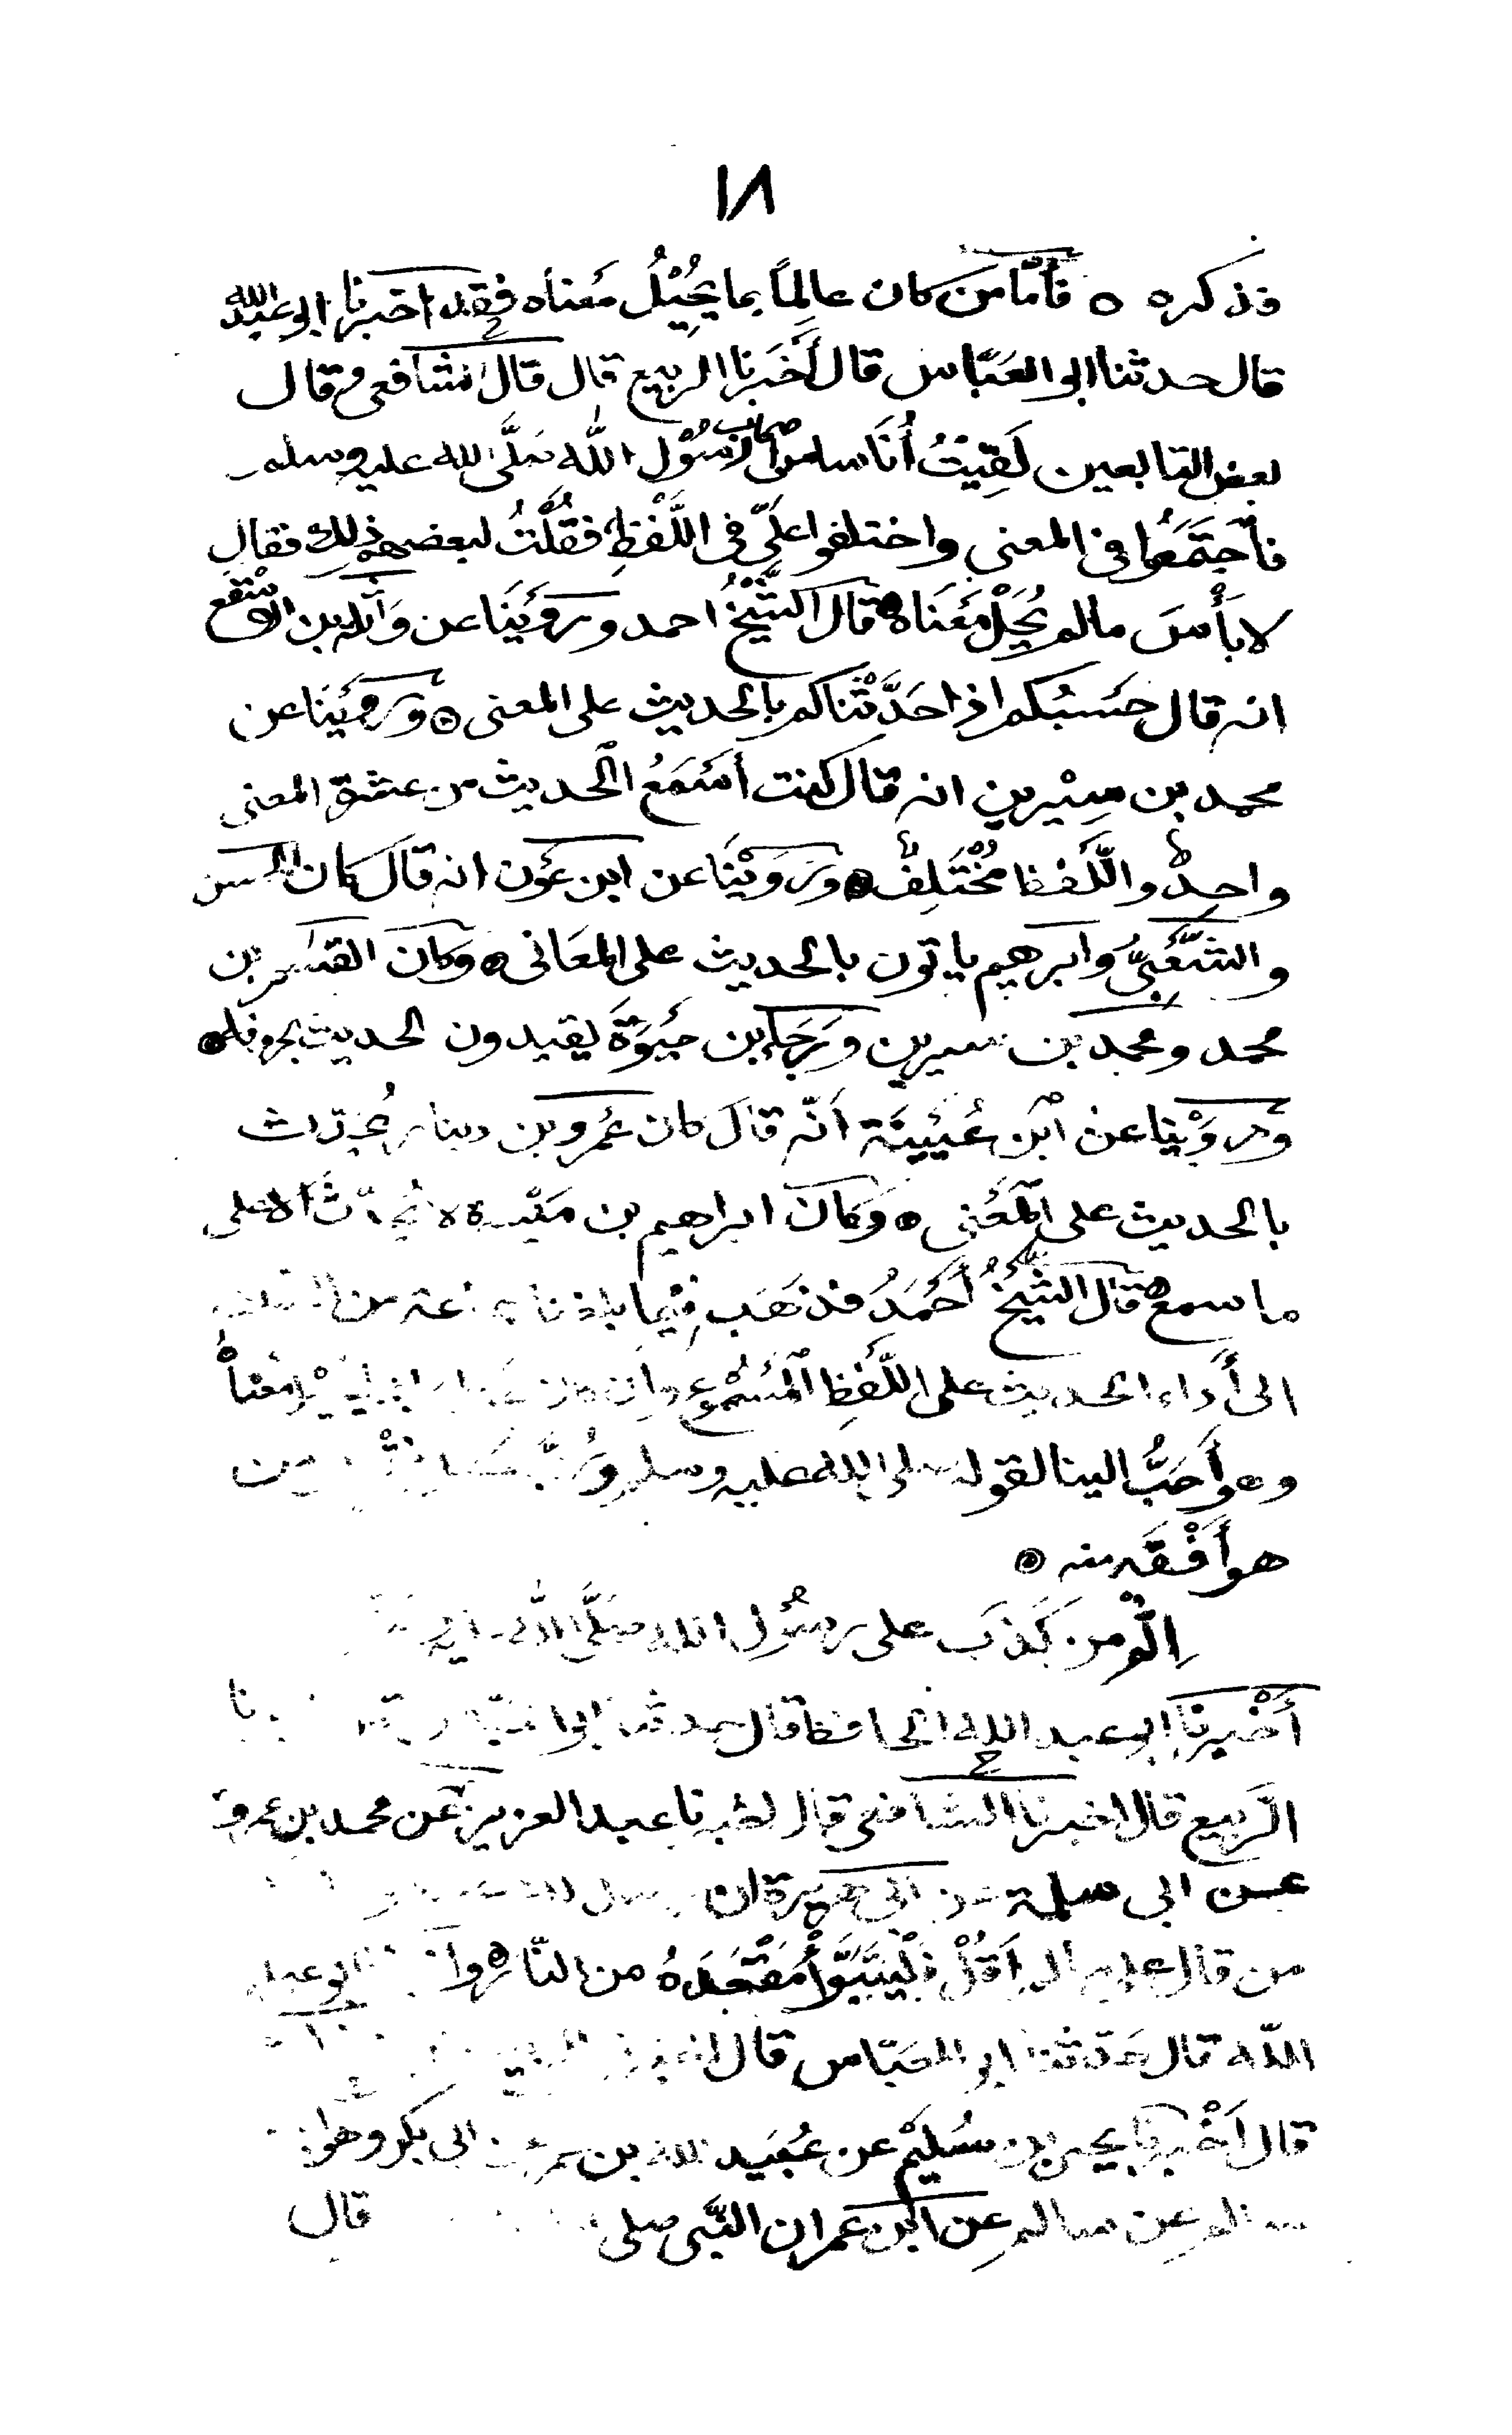 ١٨
فذكره ٥ فأمّا من كان عالِماً بما يُحِيْلُ مَعناه فقد اخبرنا ابو عبد الله
قال حدثنا ابو العَبّاس قال أَخَبَرنا الربيع قال قال الشافعي وقال
بعض التابعين لَقِيْتُ أُنَاسا من اصحاب رَسُوْل الله صَلَّى الله عليه وسلم
فأجتَمَعُوا في المعنى واختلفوا علَيّ في اللَّفْظِ فقُلْتُ لبعضهم ذلك فقال
لا بأْسَ مالم يُحِلْ مَعَنَاهُ ٥ قال الشَّيْخُ احمد ورَوَيْنَا عن وَاثلة بن الاسْقع
انه قال حَسْبُكم اذا حَدَّثْناكم بالحديث على المعنى ٥ ورَوَيْنَا عن
محمد بن سِيْرين انه قال كنت أسْمَعُ الحديث من عشرة المعنى
واحِدٌ واللَّفْظ مُخْتَلِفٌ ٥ ورَوَيْنَا عن ابن عَوْن انه قال كان الحسن
والشَّعْبِيُّ وابرهيم ياتون بالحديث على المعَاني ٥ وكان القسم بن
محمد ومحمد بن سيرين ورَجَاء بن حَيْوَةَ يقيدون الحديث بحروفه ٥
ورَوَيْنا عن ابن عُيَيْنَة أنّه قال كان عَمْرو بن دينار يُحَدّث
بالحديث على المَعْنى ٥ وَكان ابراهيم بن مَيْسرة لا يُحَدّثُ الا على
ما سمع ٥ قال الشَّيْخُ أَحْمَدُ فذَهَب فِيْما بلغنا جماعة من
الى أَداء الحديث على اللَّفْظِ المَسْمُوع وان كان مَعْناهُ
وهو أَحَبُّ الينا لقوله صلى الله عليه وسلم ورُبَّ
هو أَفْقَه منه ٥
اثْم من كَذَبَ على رسُول الله صَلَّى الله
أَخْبرنا ابو عبد الله الحافظ قال حدثنا ابو
الرَّبيع قال اخبرنا الشافعي قال اخبرنا عبد العزيز عَن محمد بن عمرو
عن ابي سلمة عن ابي هريرة ان
من قال علي ما لم اَقُلْ فَلْيَتَبَوَّأْ مَقْعَدَهُ من النّار ٥ ابو عبد
الله قال حَدّثنا ابو العبّاس قال
قال أَخْبرنا يحيى بن سُليْم عن عُبَيد الله بن عمر عن ابي بكر وهو ابن
سالم عن سالم عن ابن عمر ان النَّبي صلى قال